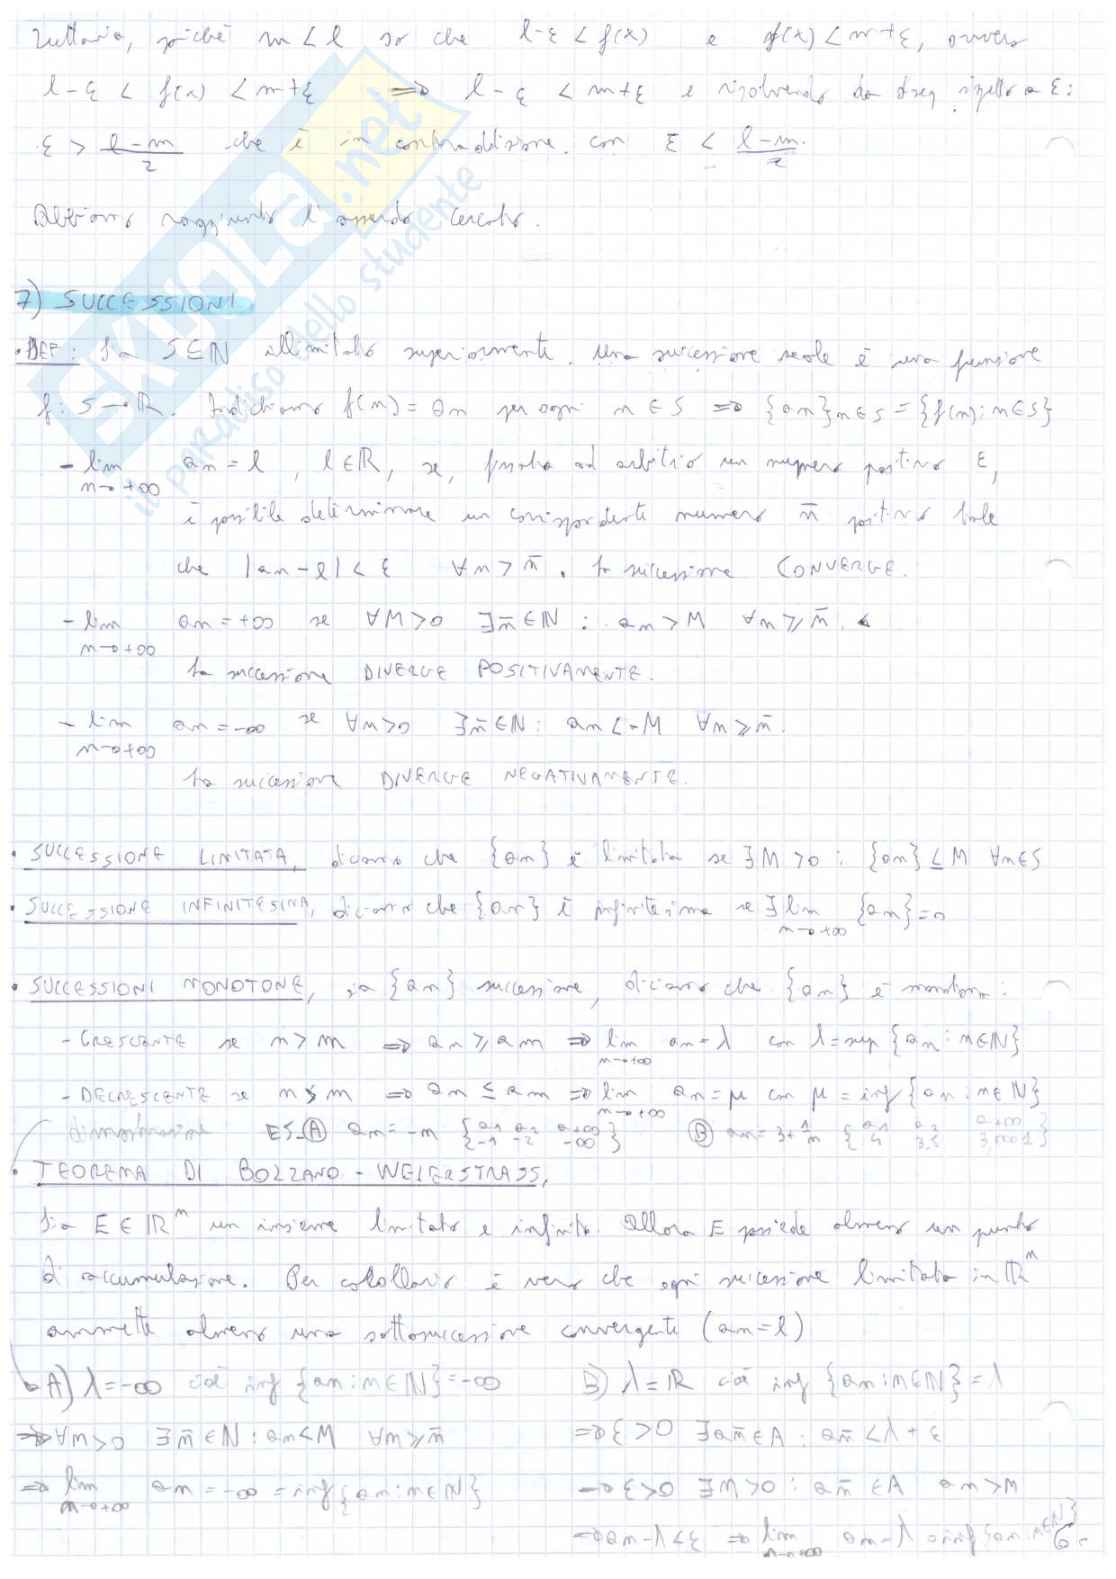 Tuttavia, poiché m < l so che l-ε < f(x) e f(x) < m+ε, ovvero
l-ε < f(x) < m+ε ⇒ l-ε < m+ε e risolvendo la diseq. rispetto a ε:
ε > (l-m)/2 che è in contraddizione con ε < (l-m)/2.
Abbiamo raggiunto l'assurdo cercato.
7) SUCCESSIONI
• DEF: Sia S∈ℕ illimitato superiormente. Una successione reale è una funzione
f: S→ℝ. Indichiamo f(n) = an per ogni n∈S ⇒ {an}n∈S = {f(n): n∈S}
- lim n→+∞ an = l, l∈ℝ, se, fissato ad arbitrio un numero positivo ε,
è possibile determinare un corrispondente numero n̄ positivo tale
che |an-l| < ε ∀n > n̄. La successione CONVERGE.
- lim n→+∞ an = +∞ se ∀M>0 ∃n̄∈ℕ : an > M ∀n ≥ n̄.
La successione DIVERGE POSITIVAMENTE.
- lim n→+∞ an = -∞ se ∀M>0 ∃n̄∈ℕ : an < -M ∀n ≥ n̄.
La successione DIVERGE NEGATIVAMENTE.
• SUCCESSIONE LIMITATA, diciamo che {an} è limitata se ∃M>0 : {an} ≤ M ∀n∈S
• SUCCESSIONE INFINITESIMA, diciamo che {an} è infinitesima se ∃ lim n→+∞ {an} = 0
• SUCCESSIONI MONOTONE, sia {an} successione, diciamo che {an} è monotona:
- CRESCENTE se n > m ⇒ an ≥ am ⇒ lim n→+∞ an = λ con λ = sup {an : n∈ℕ}
- DECRESCENTE se n > m ⇒ an ≤ am ⇒ lim n→+∞ an = μ con μ = inf {an : n∈ℕ}
dimostrazione ES. Ⓐ an = -n {a1 a2 a+∞ / -1 -2 -∞} Ⓑ an = 3+1/n {a1 a2 a+∞ / 4 3,5 3,0001}
• TEOREMA DI BOZZANO - WEIERSTRASS,
Sia E∈ℝⁿ un insieme limitato e infinito. Allora E possiede almeno un punto
di accumulazione. Per corollario è vero che ogni successione limitata in ℝⁿ
ammette almeno una sottosuccessione convergente (an = l)
A) λ = -∞ cioè inf {an : n∈ℕ} = -∞ B) λ = ℝ cioè inf {an : n∈ℕ} = λ
⇒ ∀M>0 ∃n̄∈ℕ : an < M ∀n ≥ n̄ ⇒ ε>0 ∃an̄∈A : an̄ < λ+ε
⇒ lim n→+∞ an = -∞ = inf {an : n∈ℕ} ⇒ ε>0 ∃M>0 : an̄∈A an > M
⇒ an-λ < ε ⇒ lim n→+∞ an = λ = inf {an : n∈ℕ}
6-
SKUOLA.net
il paradiso dello studente